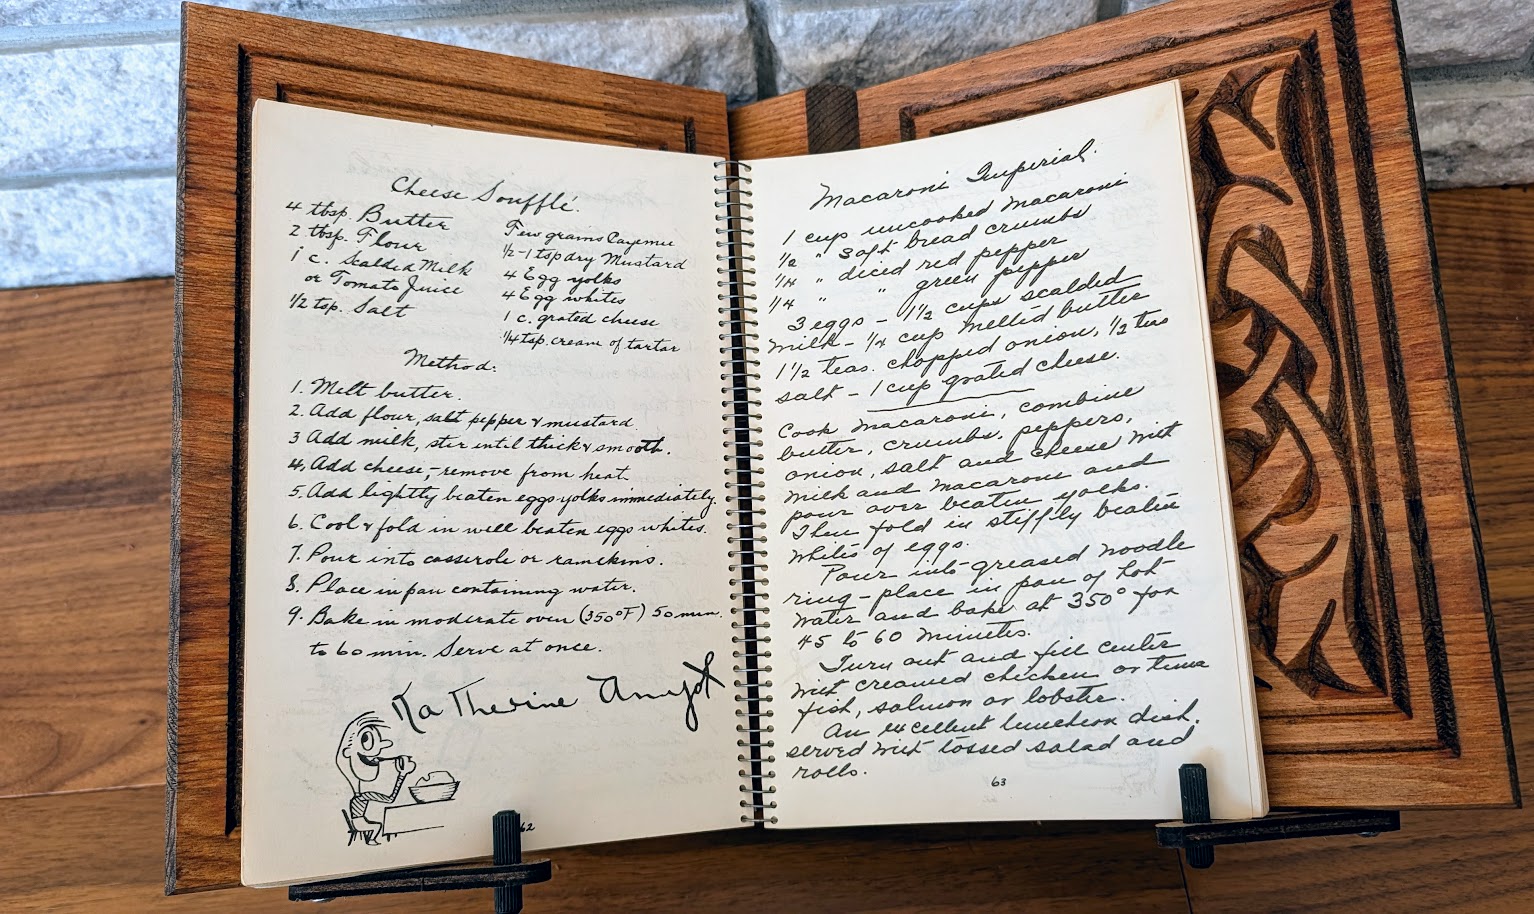 Cheese Soufflé.
4 tbsp. Butter
2 tbsp. Flour
1 c. Scalded Milk
or Tomato Juice
1/2 tsp. Salt
Few grains Cayenne
1/2-1 tsp dry Mustard
4 Egg yolks
4 Egg whites
1 c. grated cheese
1/4 tsp. cream of tartar
Method:
1. Melt butter.
2. Add flour, salt pepper & mustard.
3 Add milk, stir until thick & smooth.
4. Add cheese,-remove from heat.
5. Add lightly beaten eggs yolks immediately.
6. Cool & fold in well beaten eggs whites.
7. Pour into casserole or ramekins.
8. Place in pan containing water.
9. Bake in moderate oven (350°F) 50 min.
to 60 min. Serve at once.
Katherine Amyot
62
Macaroni Imperial.
1 cup uncooked Macaroni
1/2 " soft bread crumbs
1/4 " diced red pepper
1/4 " " green pepper
3 eggs - 1 1/2 cups scalded
milk - 1/4 cup melted butter
1 1/2 teas. chopped onion, 1/2 teas
salt - 1 cup grated cheese.
Cook Macaroni, combine
butter, crumbs, peppers,
onion, salt and cheese with
milk and macaroni and
pour over beaten yolks.
Then fold in stiffly beaten
whites of eggs.
Pour into greased noodle
ring - place in pan of hot
water and bake at 350° for
45 to 60 minutes.
Turn out and fill center
with creamed chicken or tuna
fish, salmon or lobster.
An excellent luncheon dish.
served with tossed salad and
rolls.
63